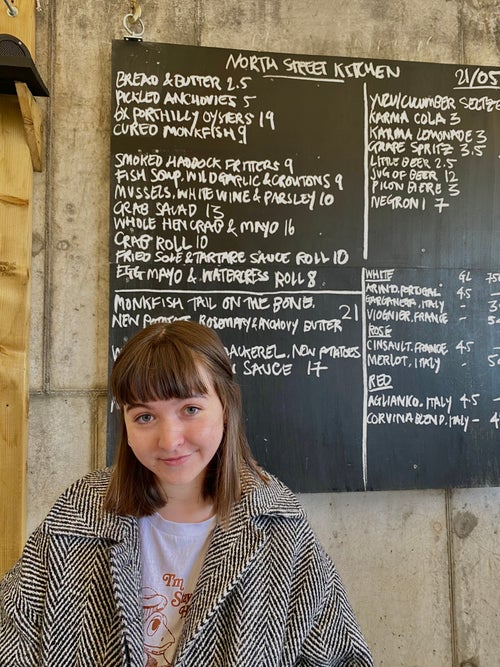 NORTH STREET KITCHEN
21/05
BREAD & BUTTER 2.5
PICKLED ANCHOVIES 5
6X PORTHILLY OYSTERS 19
CURED MONKFISH 9
SMOKED HADDOCK FRITTERS 9
FISH SOUP, WILD GARLIC & CROUTONS 9
MUSSELS, WHITE WINE & PARSLEY 10
CRAB SALAD 13
WHOLE HEN CRAB & MAYO 16
CRAB ROLL 10
FRIED SOLE & TARTARE SAUCE ROLL 10
EGG MAYO & WATERCRESS ROLL 8
MONKFISH TAIL ON THE BONE,
NEW POTATOES, ROSEMARY & ANCHOVY BUTTER 21
MACKEREL, NEW POTATOES
SAUCE 17
YUZU/CUCUMBER
KARMA COLA 3
KARMA LEMONADE 3
GRAPE SPRITZ 3.5
LITTLE BEER 2.5
JUG OF BEER 12
PICON BIERE 3
NEGRONI 7
WHITE GL 75
ARINTO, PORTUGAL 4.5 -
GARGANEGA, ITALY - 3
VIOGNIER, FRANCE - 5
ROSE
CINSAULT, FRANCE 4.5 -
MERLOT, ITALY - 5
RED
AGLIANKO, ITALY 4.5 -
CORVINA BLEND, ITALY - 4
I'm